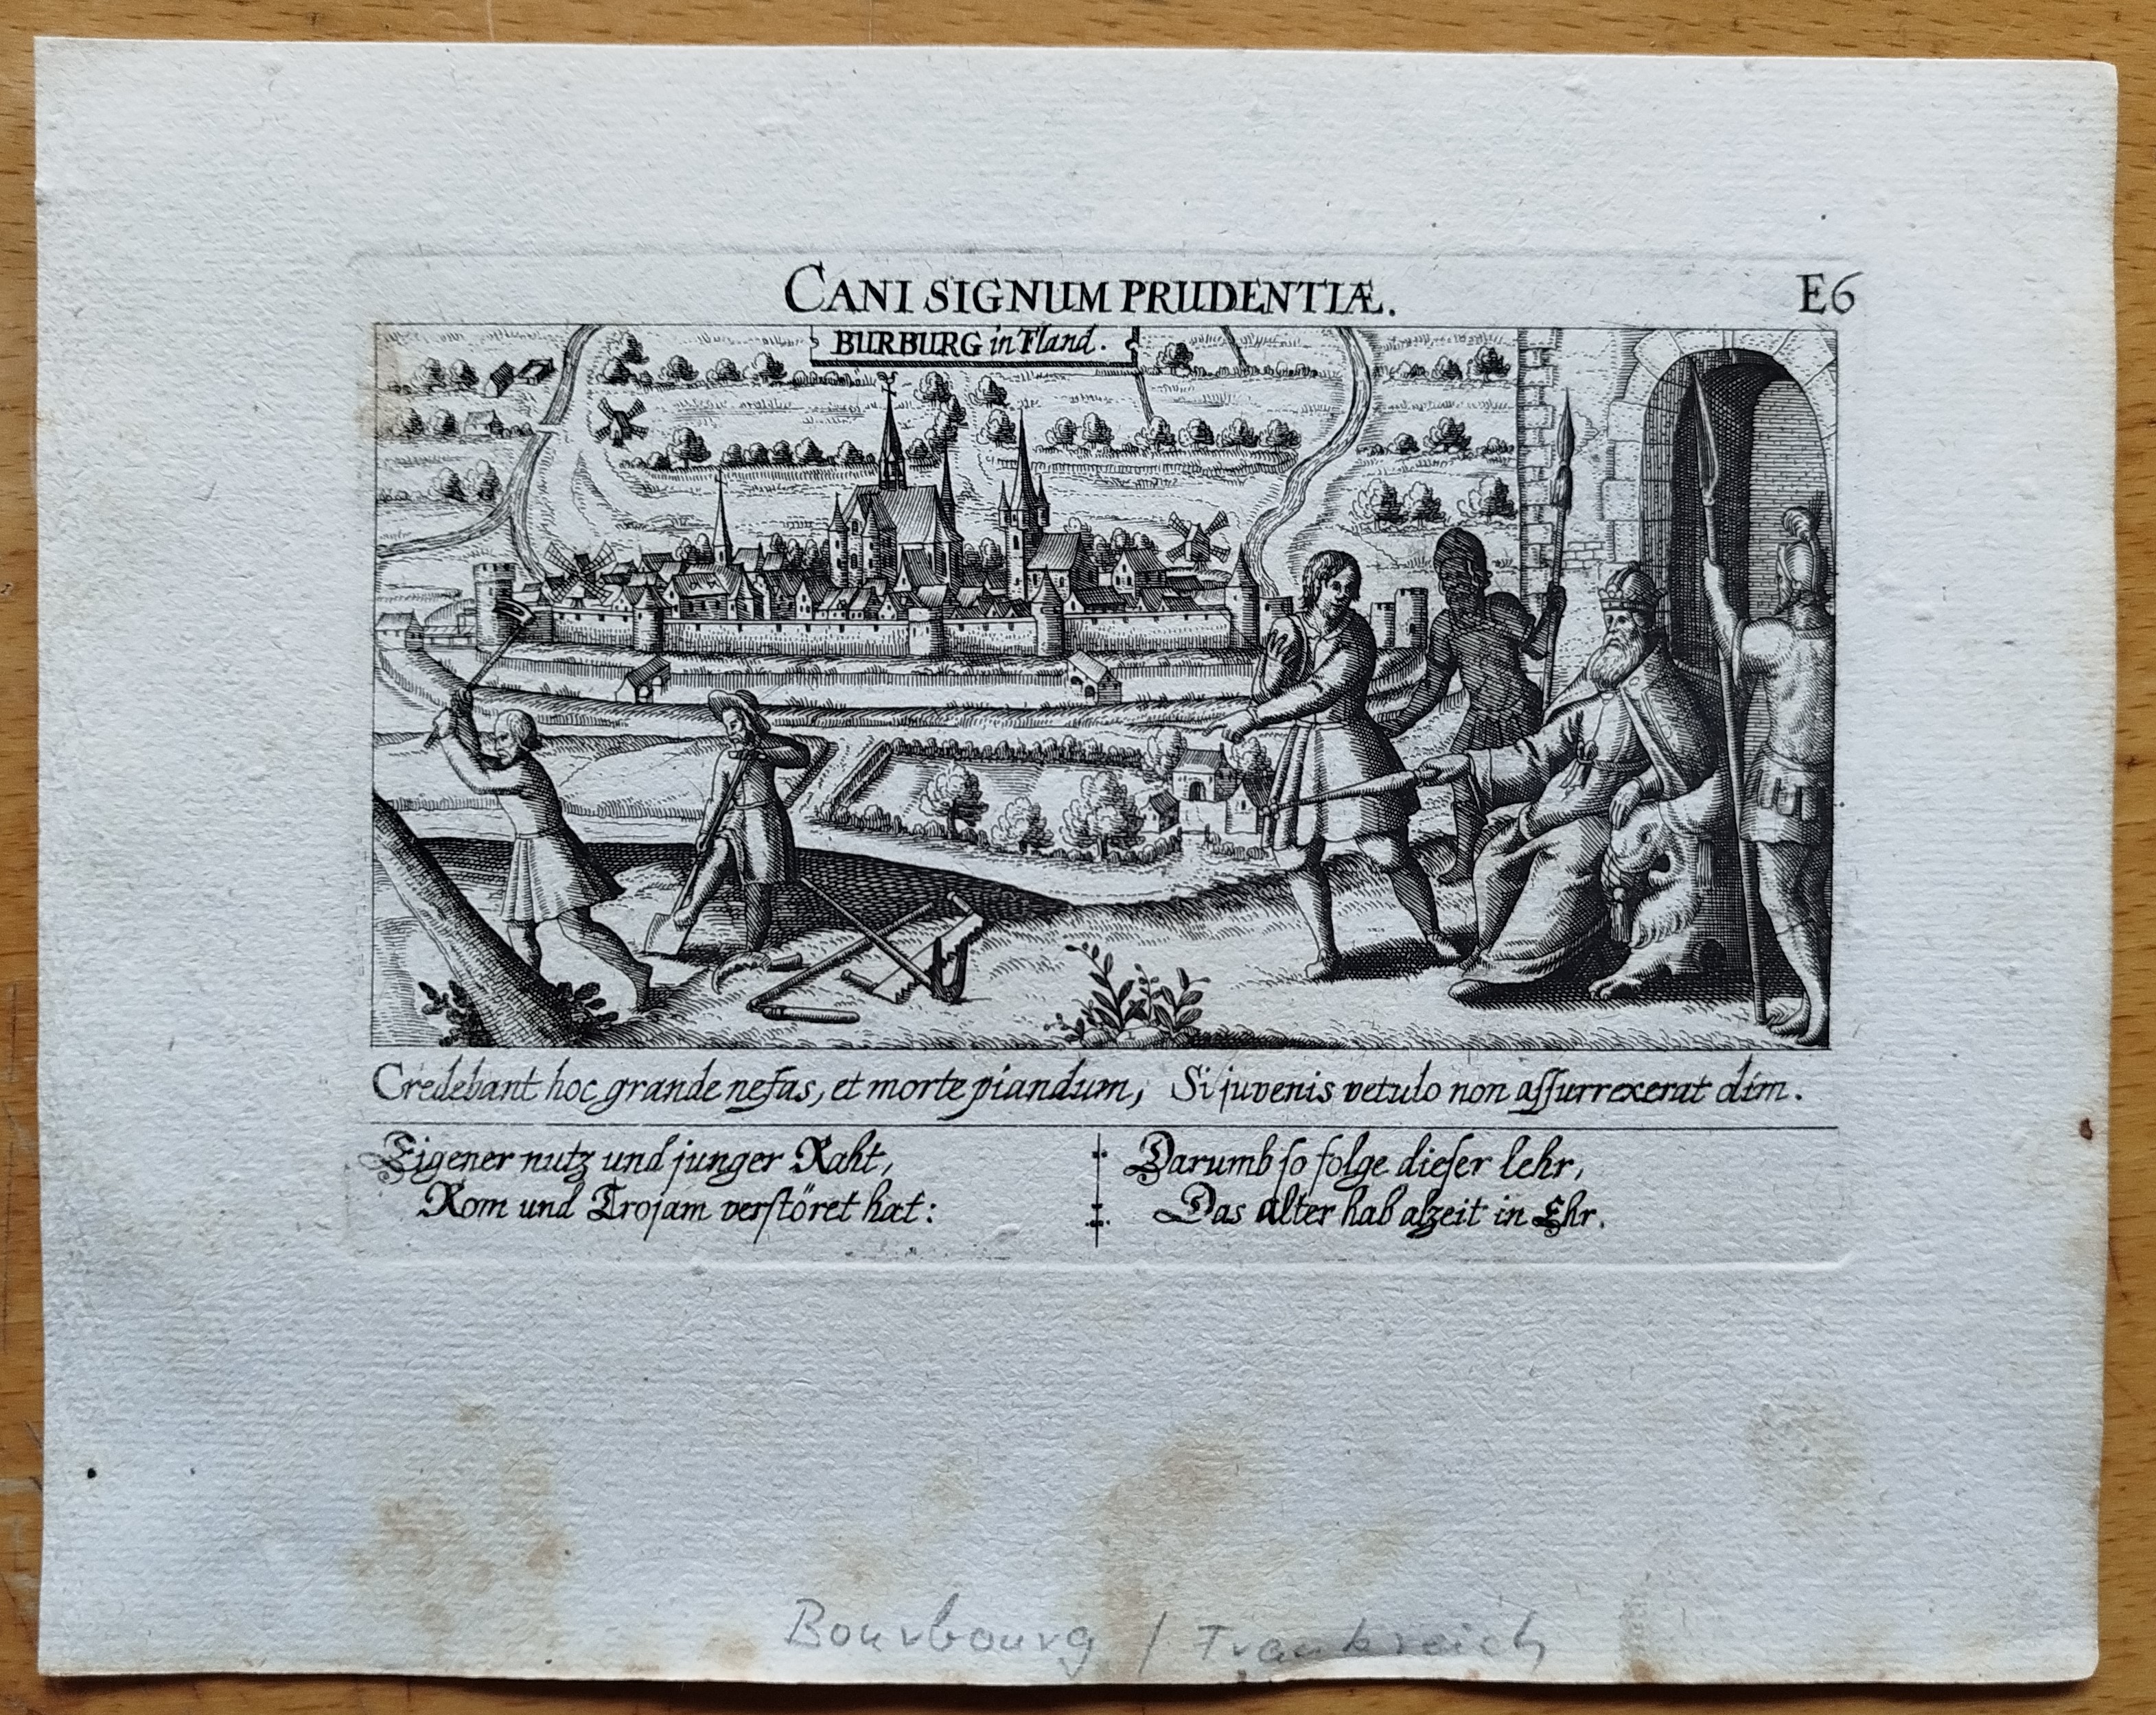 CANI SIGNUM PRUDENTIÆ.
E6
BURBURG in Fland.
Credebant hoc grande nefas, et morte piandum, Si juvenis vetulo non aſſurrexerat olim.
Eigener nutz und junger Raht,
Rom und Trojam verſtöret hat:
Darumb ſo folge dieſer lehr,
Das alter hab alzeit in Ehr.
Bourbourg / Frankreich